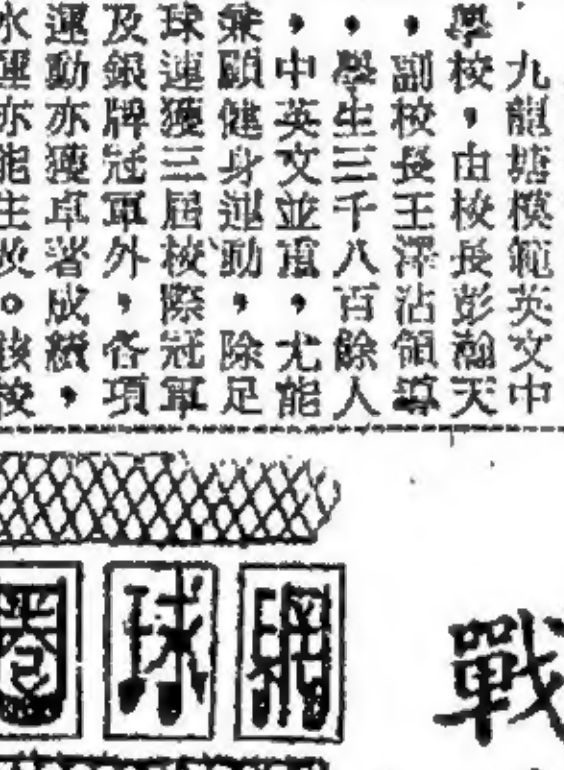 九龍塘模範英文中
學校，由校長彭瀚天
，副校長王澤沾領導
，學生三千八百餘人
，中英文並重，尤能
兼顧健身運動，除足
球連獲三屆校際冠軍
及銀牌冠軍外，各項
運動亦獲卓著成績，
水運亦能主收。該校
網球圈
戰